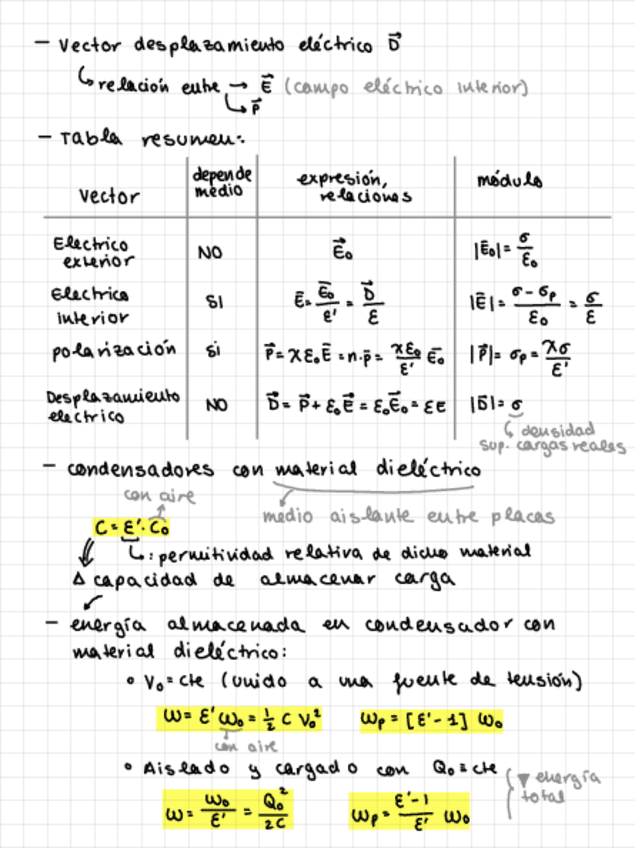 — Vector desplazamiento eléctrico D⃗
↳ relación entre → E⃗ (campo eléctrico interior)
↳ P⃗
— Tabla resumen:
vector | depende medio | expresión, relaciones | módulo
Electrico exterior | NO | E⃗₀ | |E⃗₀| = σ/ε₀
Electrico interior | SI | E⃗ = E⃗₀/ε' = D⃗/ε | |E⃗| = (σ - σp)/ε₀ = σ/ε
polarización | si | P⃗ = χε₀E⃗ = n·p⃗ = χε₀/ε' E⃗₀ | |P⃗| = σp = χσ/ε'
Desplazamiento electrico | NO | D⃗ = P⃗ + ε₀E⃗ = ε₀E⃗₀ = εE | |D⃗| = σ
↳ densidad
sup. cargas reales
— condensadores con material dieléctrico
con aire
medio aislante entre placas
C = ε'·C₀
↳: permitividad relativa de dicho material
Δ capacidad de almacenar carga
— energía almacenada en condensador con
material dieléctrico:
• V₀ = cte (unido a una fuente de tensión)
W = ε' W₀ = ½ C V₀² Wp = [ε'-1] W₀
con aire
• Aislado y cargado con Q₀ = cte
▼ energía
total
W = W₀/ε' = Q₀²/2C Wp = (ε'-1)/ε' W₀